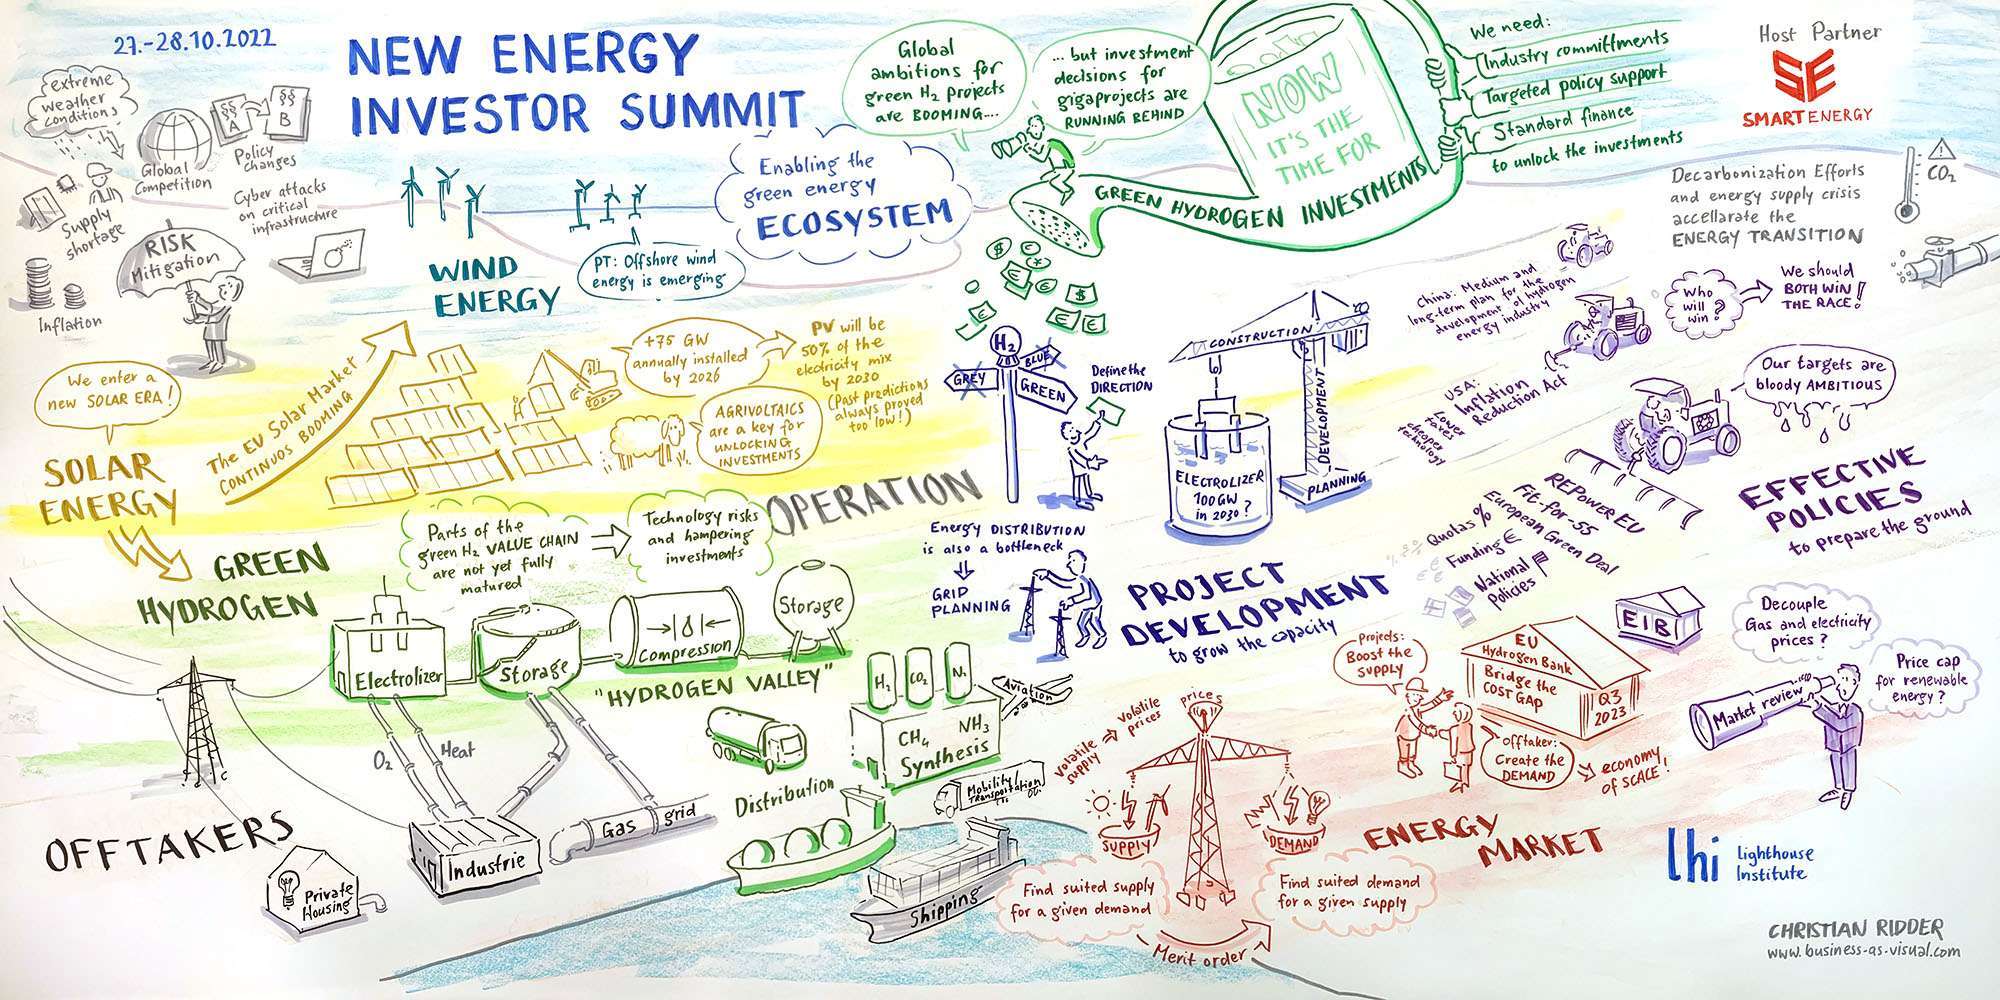 27.-28.10.2022
NEW ENERGY
INVESTOR SUMMIT
extreme
weather
conditions
§§
A
§§
B
Policy
changes
Global
Competition
Supply
shortage
Cyber attacks
on critical
infrastructure
RISK
Mitigation
Inflation
WIND
ENERGY
PT: Offshore wind
energy is emerging
Enabling the
green energy
ECOSYSTEM
Global
ambitions for
green H₂ projects
are BOOMING....
... but investment
decisions for
gigaprojects are
RUNNING BEHIND
NOW
IT'S THE
TIME FOR
GREEN HYDROGEN INVESTMENTS
We need:
Industry committments
Targeted policy support
Standard finance
to unlock the investments
Host Partner
SE
SMARTENERGY
Decarbonization Efforts
and energy supply crisis
accellarate the
ENERGY TRANSITION
CO₂
We enter a
new SOLAR ERA!
SOLAR
ENERGY
The EU Solar Market
CONTINUOS BOOMING
+75 GW
annually installed
by 2026
PV will be
50% of the
electricity mix
by 2030
(Past predictions
always proved
too low!)
AGRIVOLTAICS
are a key for
UNLOCKING
INVESTMENTS
H₂
GREY
BLUE
GREEN
Define the
DIRECTION
CONSTRUCTION
DEVELOPMENT
PLANNING
ELECTROLIZER
100GW
in 2030?
China: Medium and
long-term plan for the
development of hydrogen
energy industry
Who
will
win?
We should
BOTH WIN
THE RACE!
USA:
Inflation
Reduction Act
Lower
Taxes
cheaper
technology
Our targets are
bloody AMBITIOUS
REPowerEU
Fit-for-55
European Green Deal
Quotas %
Funding €
National
Policies
EFFECTIVE
POLICIES
to prepare the ground
OPERATION
Energy DISTRIBUTION
is also a bottleneck
GRID
PLANNING
PROJECT
DEVELOPMENT
to grow the capacity
GREEN
HYDROGEN
Parts of the
green H₂ VALUE CHAIN
are not yet fully
matured
Technology risks
and hampering
investments
Electrolizer
Storage
Compression
Storage
"HYDROGEN VALLEY"
O₂
Heat
H₂
CO₂
N₂
CH₄
NH₃
Synthesis
Aviation
Mobility/
Transportation
Distribution
Shipping
OFFTAKERS
Private
Housing
Industrie
Gas grid
Volatile
supply
Volatile
prices
prices
SUPPLY
DEMAND
Find suited supply
for a given demand
Find suited demand
for a given supply
Merit order
ENERGY
MARKET
Projects:
Boost the
SUPPLY
Offtaker:
Create the
DEMAND
economy
of SCALE!
EU
Hydrogen Bank
Bridge the
COST GAP
Q3
2023
EIB
Decouple
Gas and electricity
prices?
Price cap
for renewable
energy?
Market review
lhi Lighthouse
Institute
CHRISTIAN RIDDER
www.business-as-visual.com